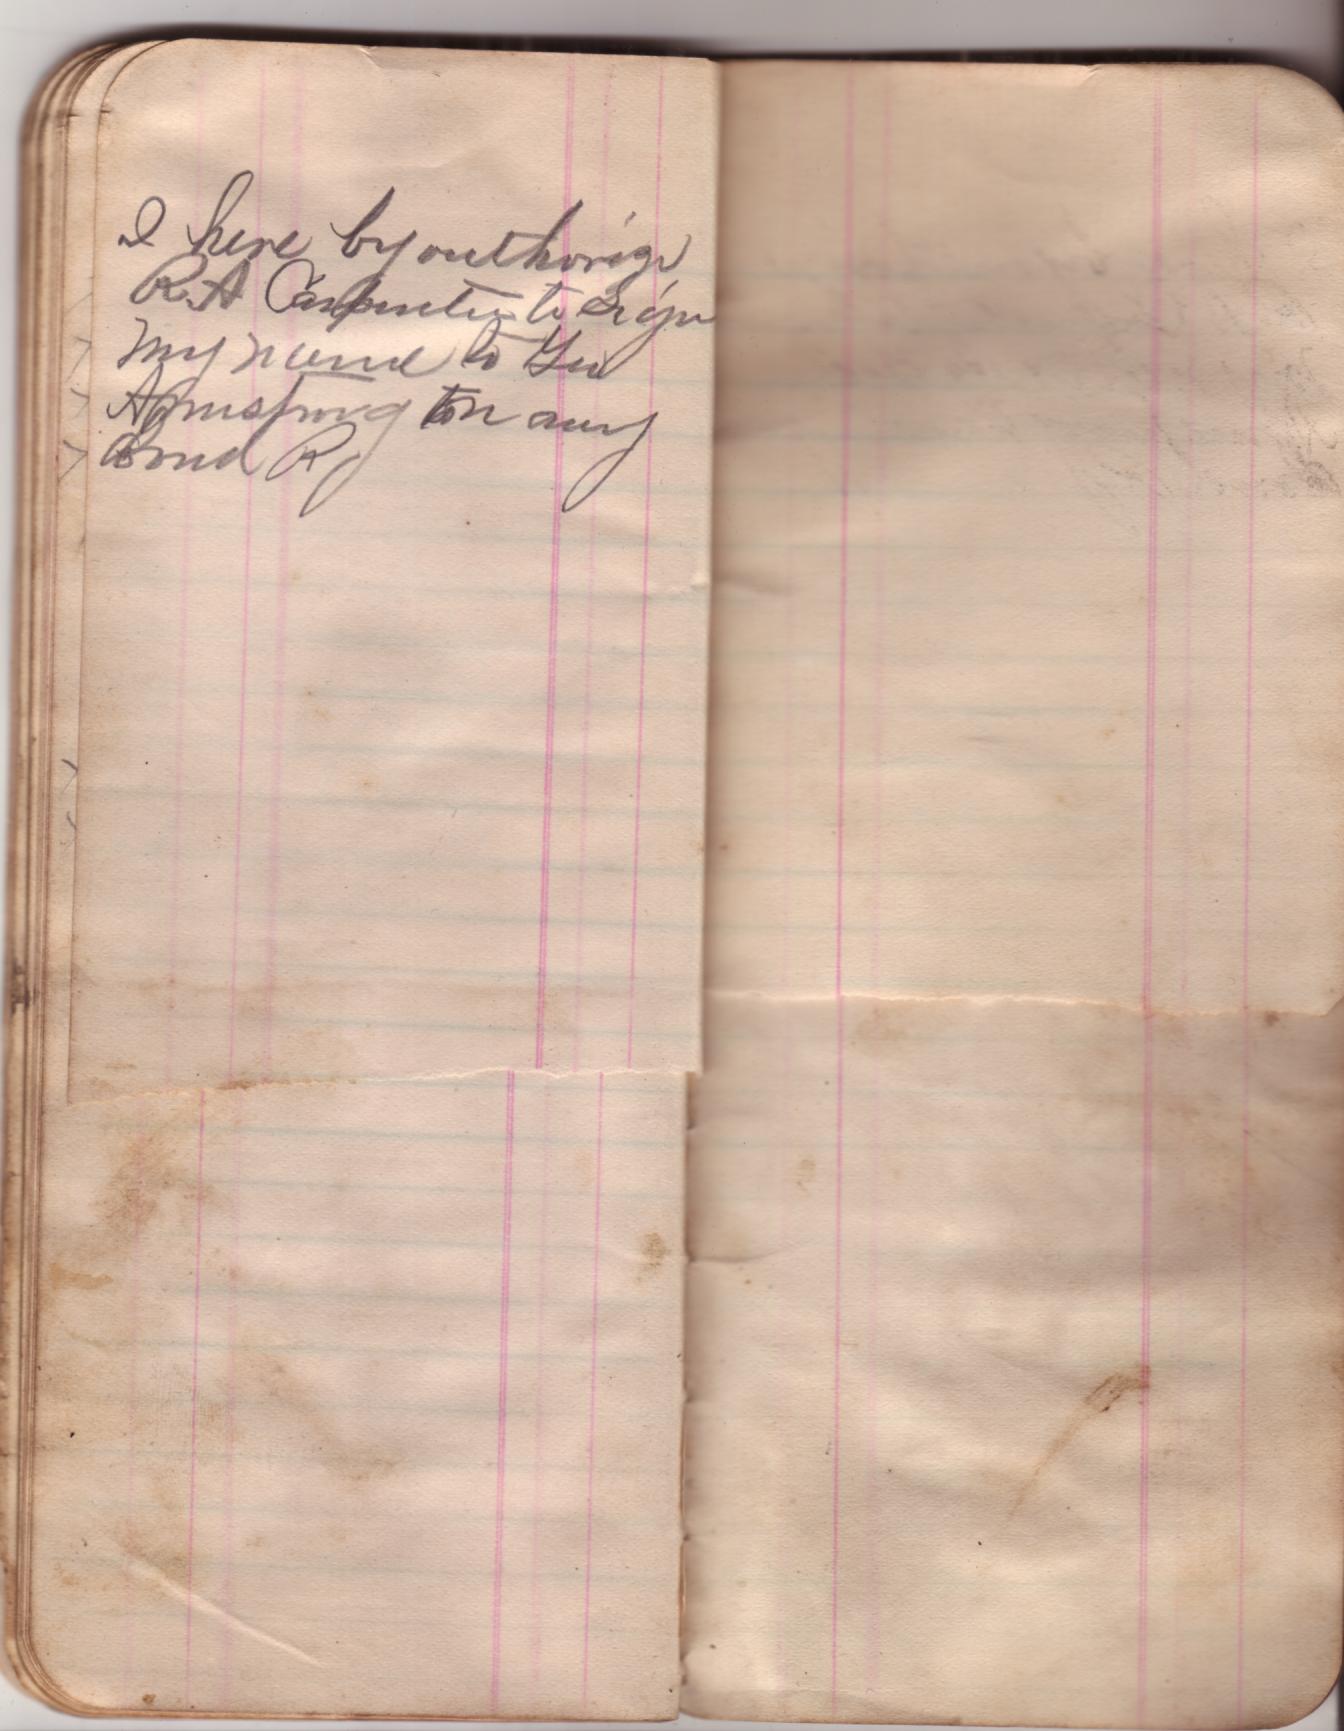 I here by authorize
R.A Carpenter to Sign
My name to Geo
Armstrong on any
Bond R